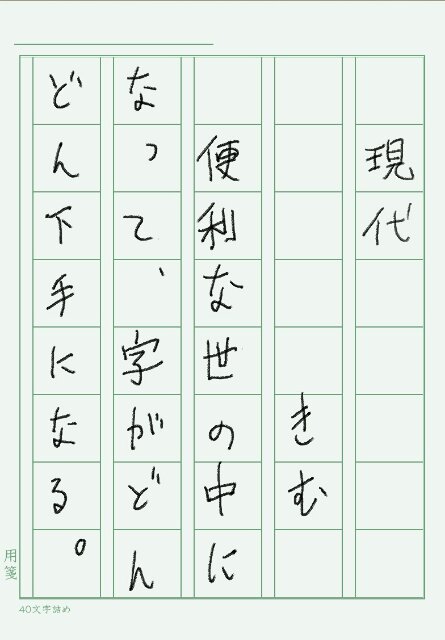 現代
きむ
便利な世の中に
なって、字がどん
どん下手になる。
用箋
40文字詰め